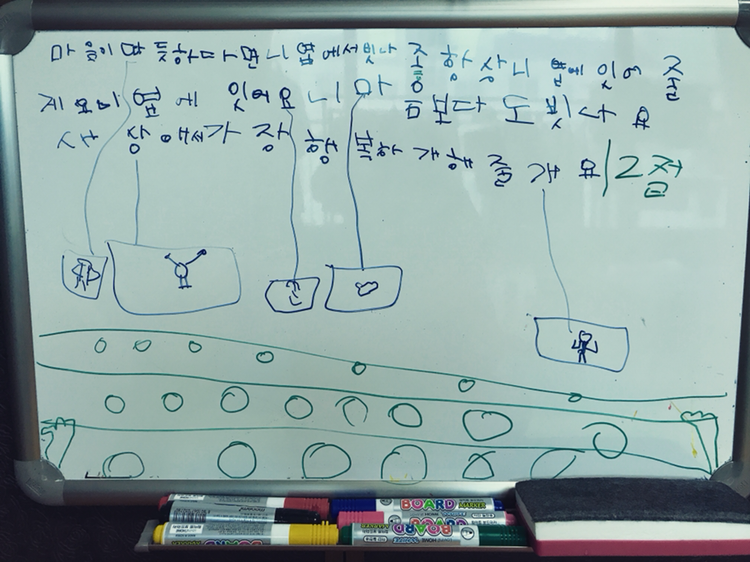 마음이 따뜻하다면 니 옆에서 빛나 줄 항상 니 옆에 있어 줄
게 요 마 옆 에 있어요 니 마 음보다 도 빛나 요
세 상 에서 가 장 행 복하 가 해 줄 개 요 12점
BOARD
BOARD
BOARD